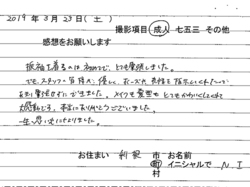 2019年3月23日(土)
撮影項目 成人 七五三 その他
感想をお願いします
振袖を着るのは初めてで、とても緊張しました。
でも、スタッフの皆様が優しく、ポーズや表情も指示してくれたので
あまり緊張せずにできました。メイクも髪型もとてもかわいくしてくれて
大感動です。本当にありがとうございました。
一生の思い出になりました。
お住まい 市 お名前
町 イニシャルで N.I
村